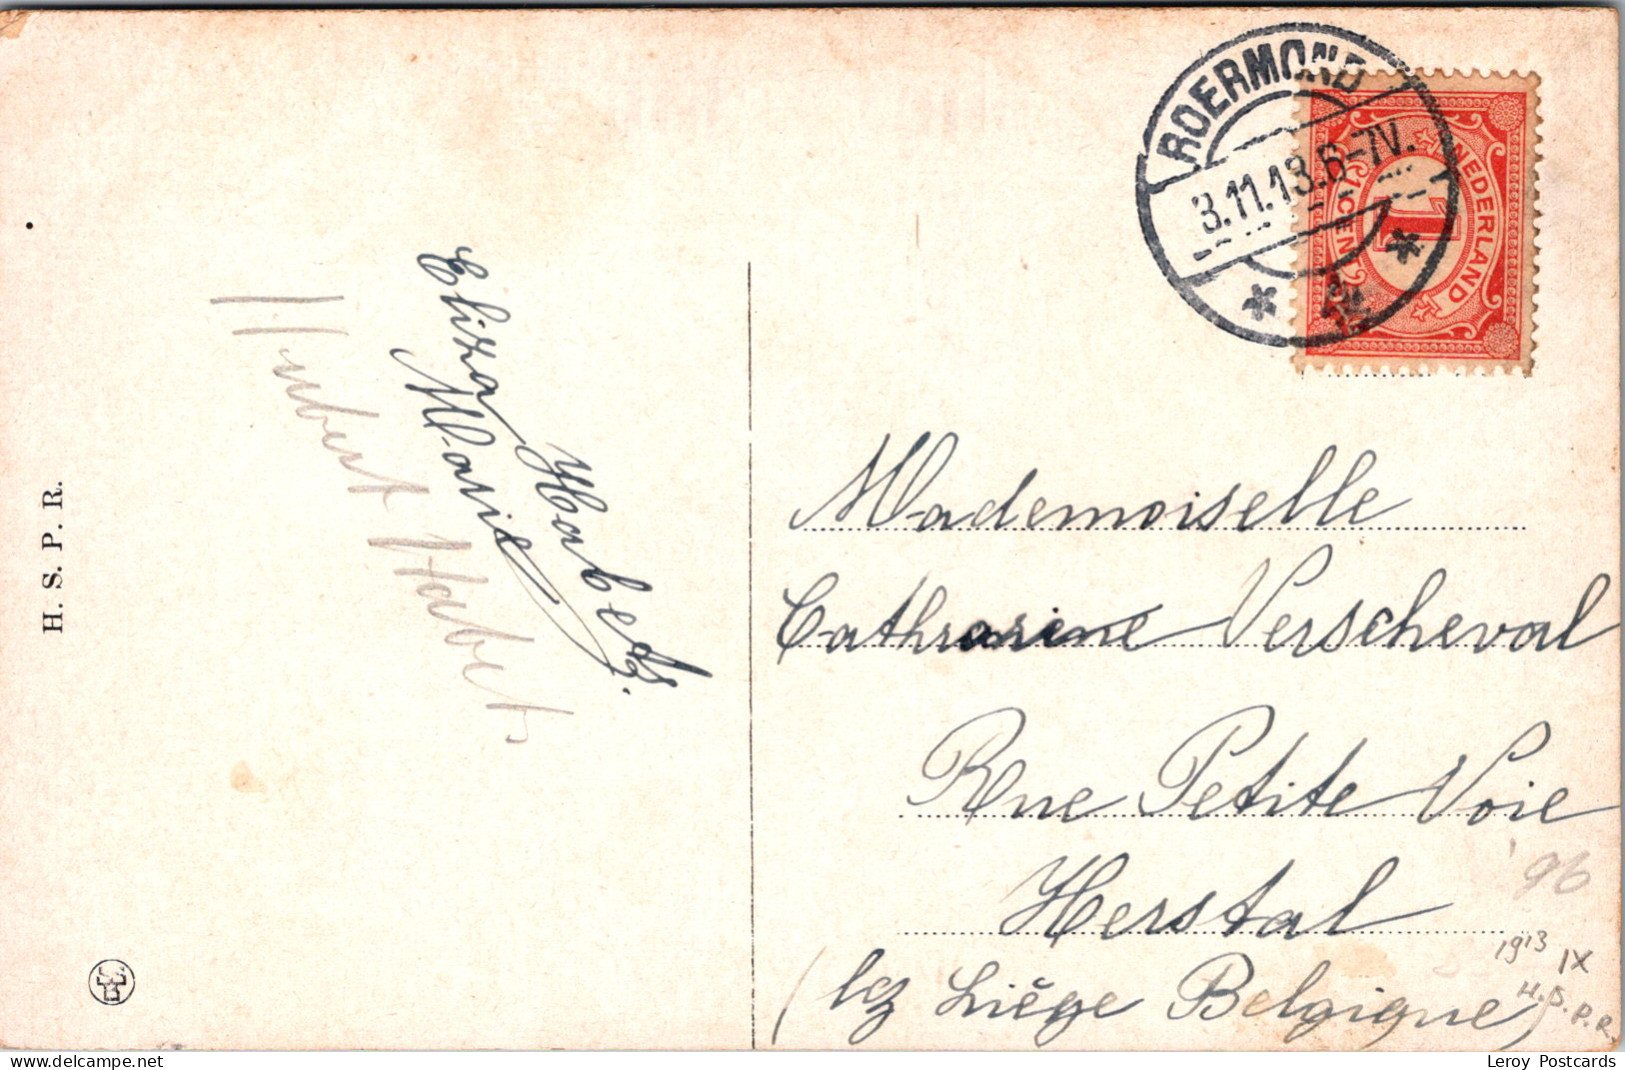 ROERMOND
3.11.13.6-7V.
NEDERLAND
1 CENT
1
Eliza Habets
Marie
Hubert Habets
Mademoiselle
Catharine Verscheval
Rue Petite Voie
96
Herstal
(lez Liège Belgique)
1913
IX
H.S.P.R.
H. S. P. R.
www.delcampe.net
Leroy Postcards